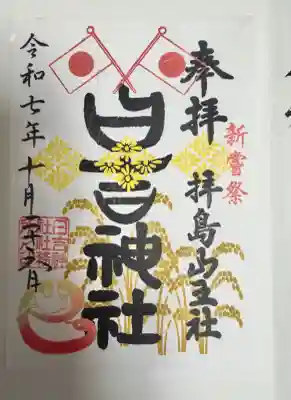 奉拝 拝島山王社
新嘗祭
日吉神社
令和七年十月二十六日